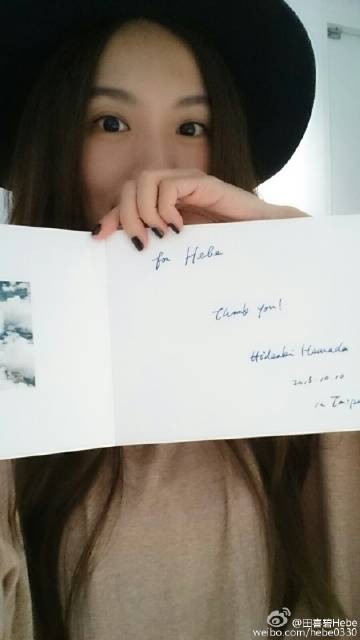 for Hebe
Thank you!
Hideaki Hamada
2013.10.10
in Taipe
@田馥甄Hebe
weibo.com/hebe0330